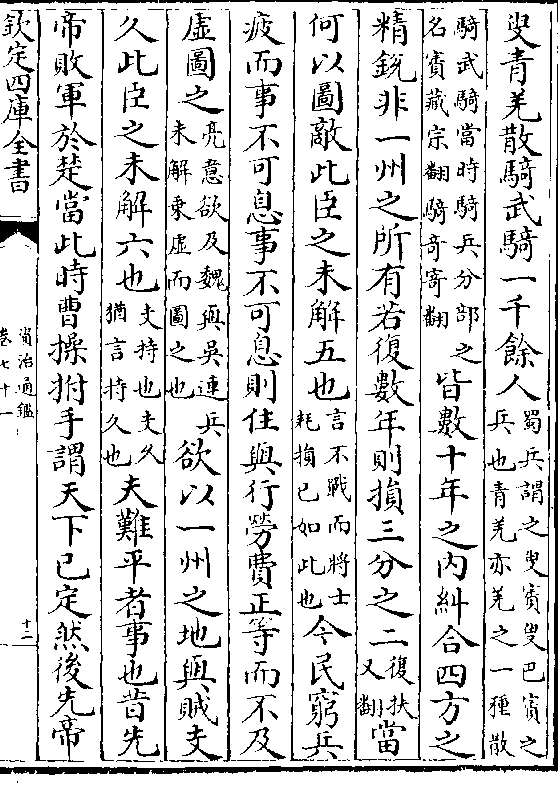 叟青羌散騎武騎一千餘人蜀兵謂之叟賨叟巴賨之
兵也青羌亦羌之一種散
騎武騎當時騎兵分部之
名賨藏宗翻騎奇寄翻皆數十年之内糾合四方之
精鋭非一州之所有若復數年則損三分之二復扶
又翻當
何以圖敵此臣之未解五也言不戰而將士
耗損已如此也今民窮兵
疲而事不可息事不可息則住與行勞費正等而不及
虛圖之亮意欲及魏與吳連兵
未解乗虛而圖之也欲以一州之地與賊支
久此臣之未解六也支持也支久
猶言持久也夫難平者事也昔先
帝敗軍於楚當此時曹操拊手謂天下已定然後先帝
欽定四庫全書
資治通鑑
卷七十一
十二